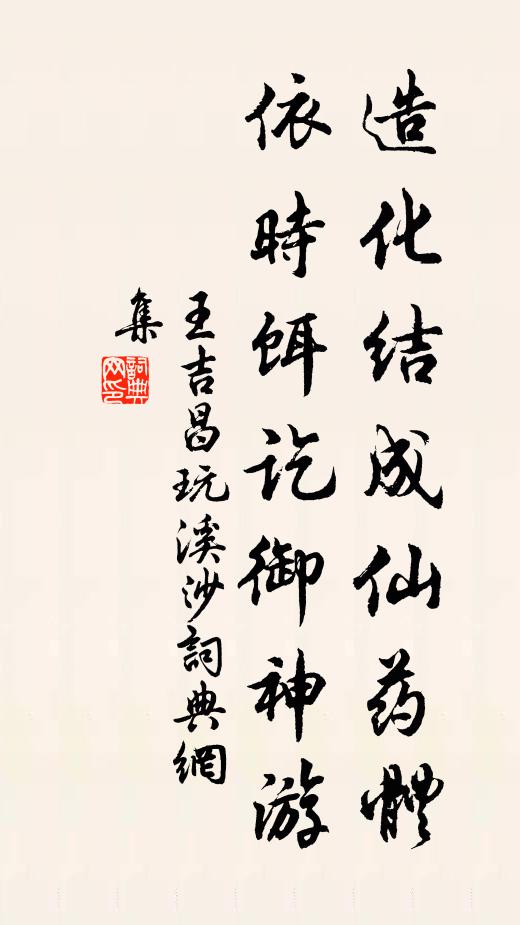 造化结成仙药體
依時饵讫御神游
王吉昌玩溪沙詞典網
集
詞典
网印